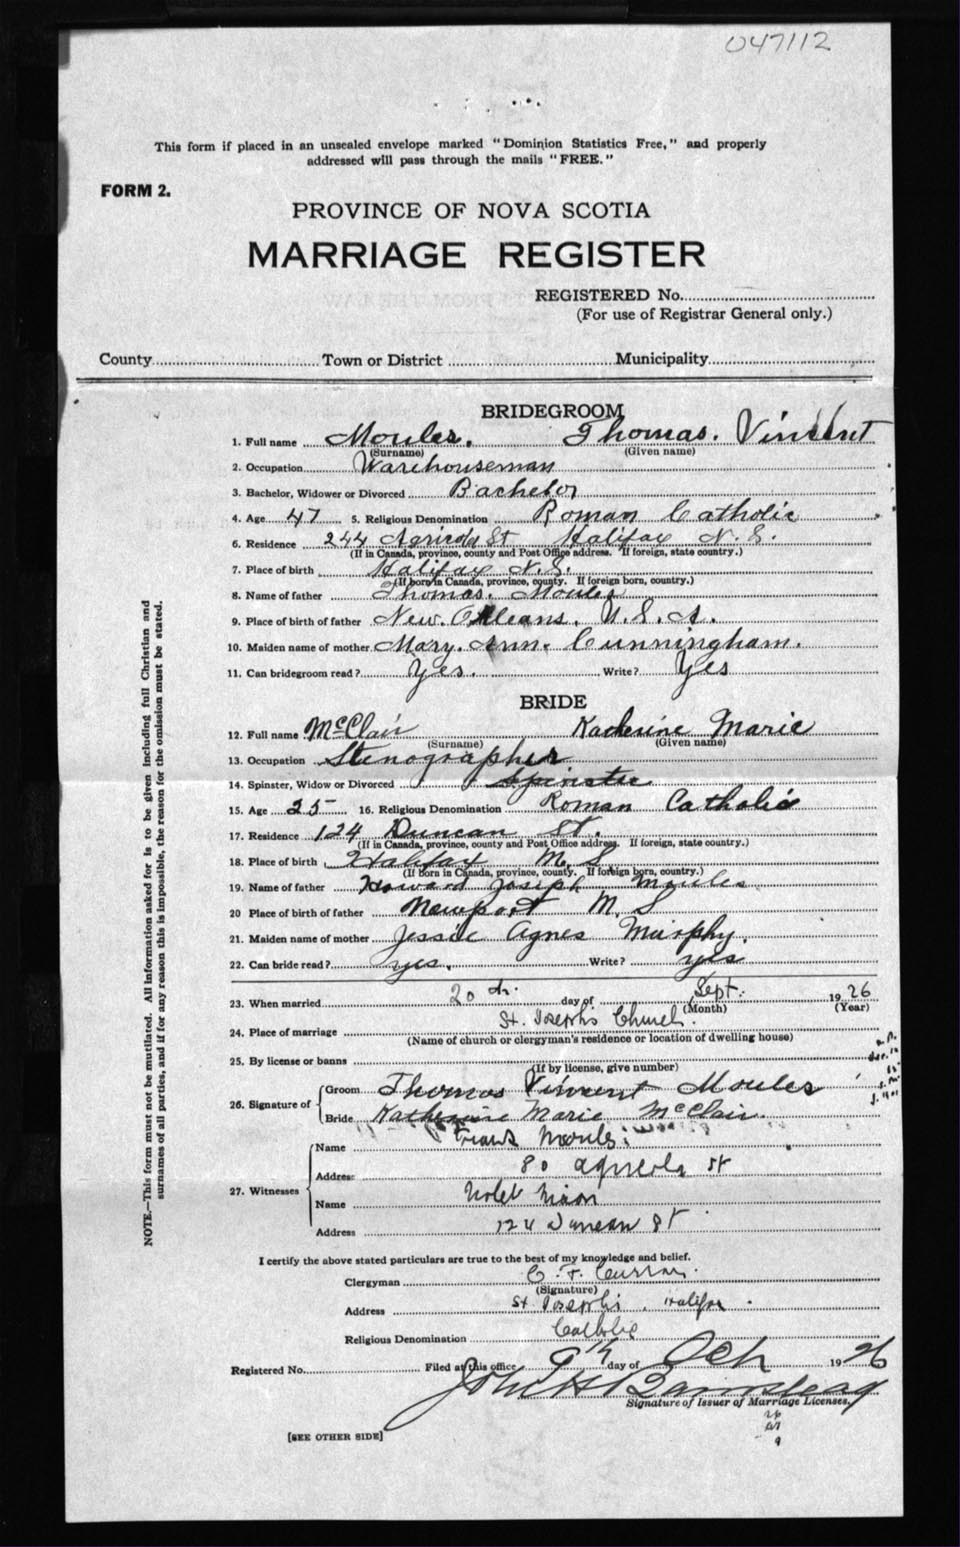 047112
This form if placed in an unsealed envelope marked "Dominion Statistics Free," and properly
addressed will pass through the mails "FREE."
FORM 2.
PROVINCE OF NOVA SCOTIA
MARRIAGE REGISTER
REGISTERED No.
(For use of Registrar General only.)
County Town or District Municipality
NOTE.—This form must not be mutilated. All information asked for is to be given including full Christian and
surnames of all parties, and if for any reason this is impossible, the reason for the omission must be stated.
BRIDEGROOM
1. Full name Moules. Thomas. Vincent
(Surname) (Given name)
2. Occupation Warehouseman
3. Bachelor, Widower or Divorced Bachelor
4. Age 47 5. Religious Denomination Roman Catholic
6. Residence 244 Agricola St Halifax N. S.
(If in Canada, province, county and Post Office address. If foreign, state country.)
7. Place of birth Halifax N. S.
(If born in Canada, province, county. If foreign born, country.)
8. Name of father Thomas. Moules
9. Place of birth of father New. Orleans. U. S. A.
10. Maiden name of mother Mary. Ann. Cunningham.
11. Can bridegroom read? Yes. Write? Yes
BRIDE
12. Full name McClair Katherine Marie
(Surname) (Given name)
13. Occupation Stenographer.
14. Spinster, Widow or Divorced Spinster
15. Age 25 16. Religious Denomination Roman Catholic
17. Residence 124 Duncan St.
(If in Canada, province, county and Post Office address. If foreign, state country.)
18. Place of birth Halifax N. S
(If Born in Canada, province, county. If foreign born, country.)
19. Name of father Howard Joseph Moules
20 Place of birth of father Newport N. S
21. Maiden name of mother Jessie Agnes Murphy.
22. Can bride read? yes. Write? yes
23. When married 20th day of Sept. 1926
(Month) (Year)
24. Place of marriage St. Joseph's Church.
(Name of church or clergyman's residence or location of dwelling house)
25. By license or banns
(If by license, give number)
26. Signature of Groom Thomas Vincent Moules
Bride Katherine Marie McClair.
27. Witnesses Name Frank Moules
Address 80 Agricola St
Name Violet Nixon
Address 124 Duncan St
I certify the above stated particulars are true to the best of my knowledge and belief.
Clergyman C. F. Curran.
(Signature)
Address St Josephs, Halifax.
Religious Denomination Catholic
Registered No. Filed at this office 9th day of Oct 1926
John H Barnstead
Signature of Issuer of Marriage Licenses.
[SEE OTHER SIDE]